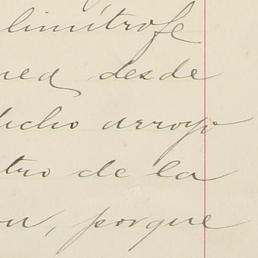 limítrofe
desde
dicho arroyo
tro de la
on, porque